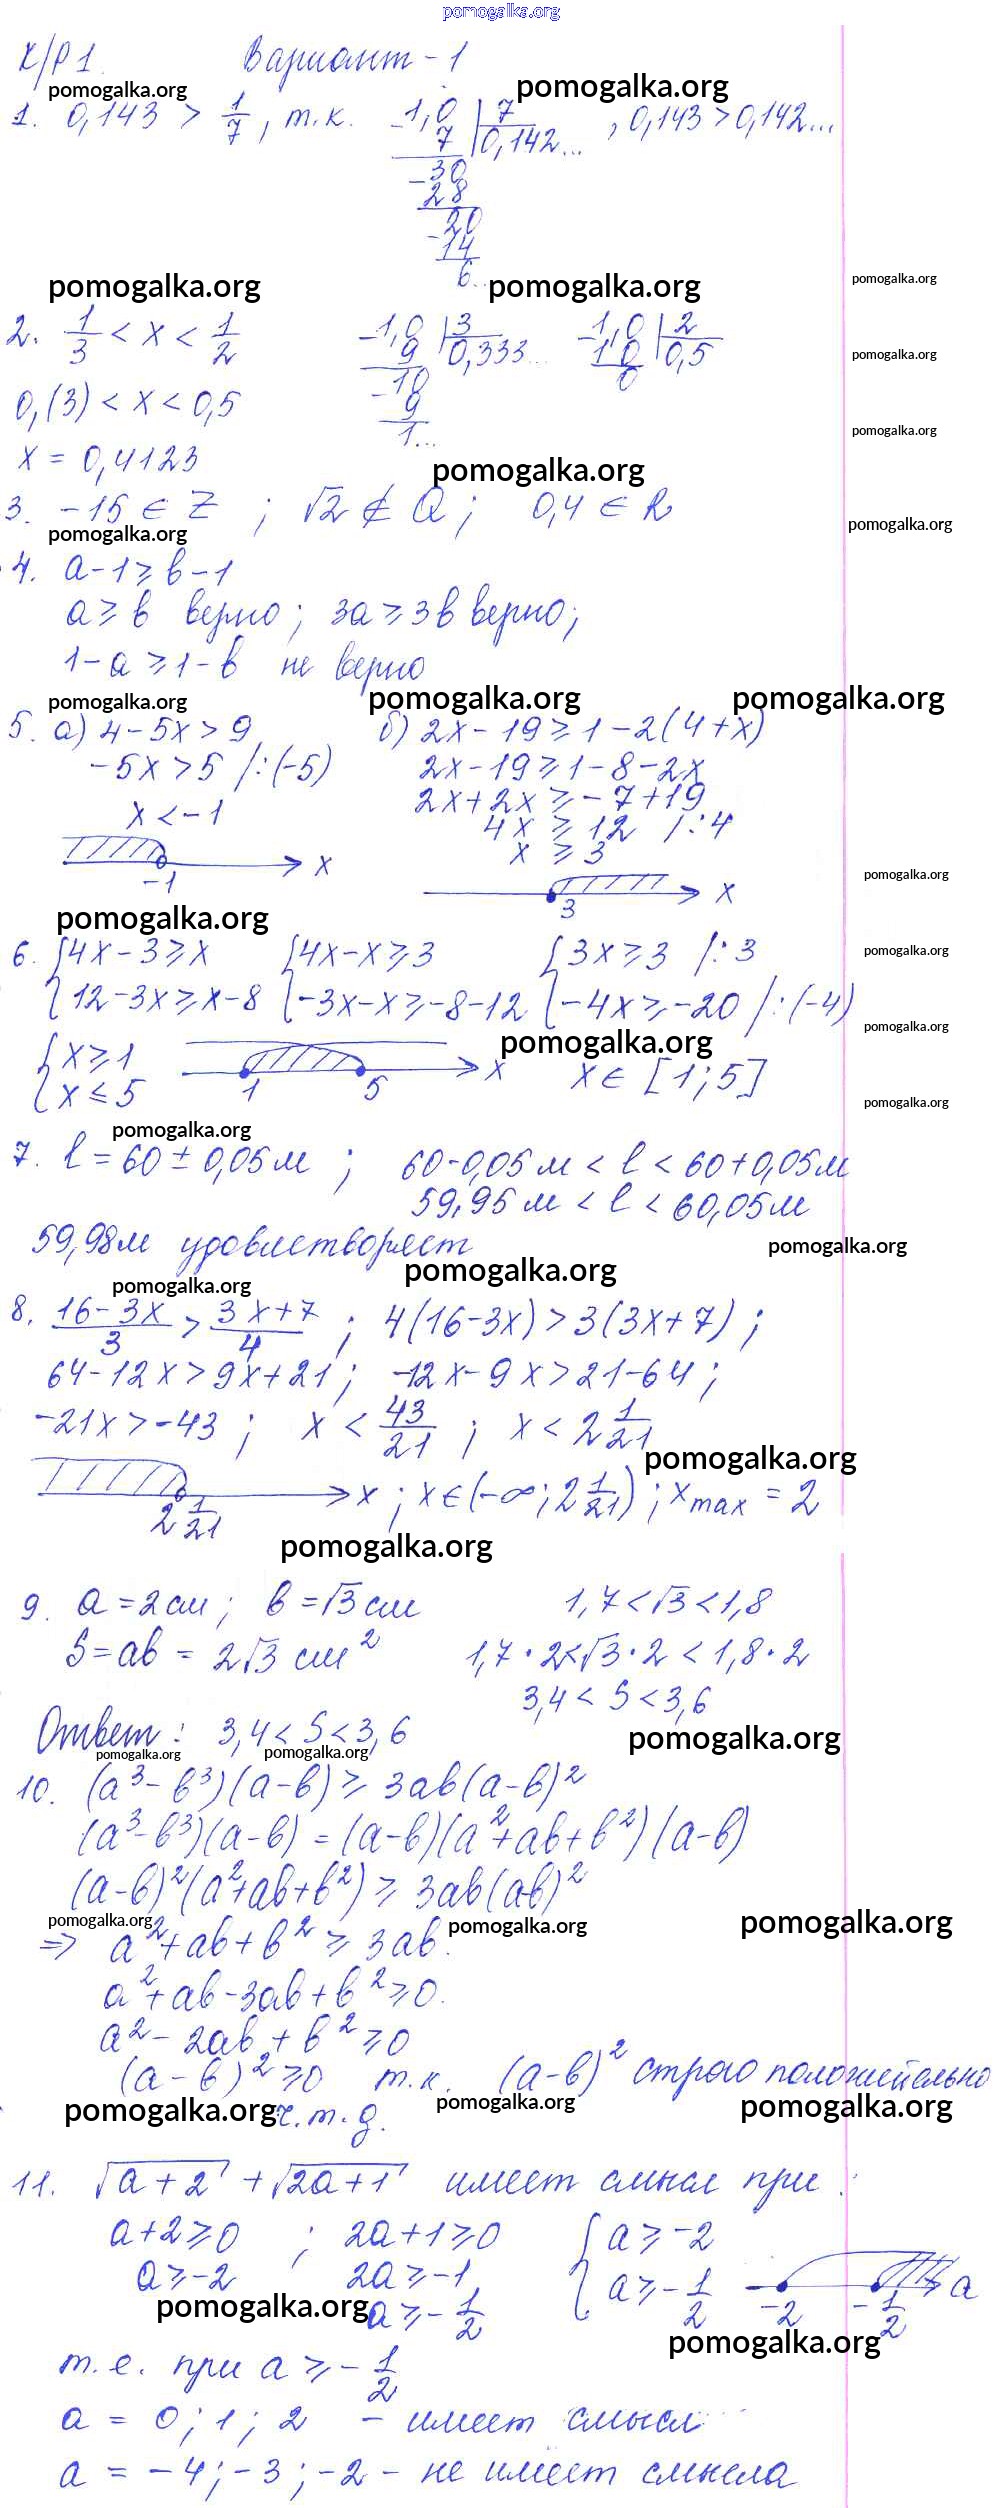 pomogalka.org
К/Р 1. Вариант - 1
pomogalka.org pomogalka.org
1. 0,143 > 1/7, т.к. 1,0 | 7 , 0,143 > 0,142...
7 | 0,142...
30
28
20
14
6...
pomogalka.org pomogalka.org pomogalka.org
2. 1/3 < x < 1/2 1,0 | 3 1,0 | 2
9 | 0,333... 10 | 0,5
10 0
pomogalka.org
0,(3) < x < 0,5 9
1...
pomogalka.org
x = 0,4123
pomogalka.org
3. -15 ∈ Z ; √2 ∉ Q ; 0,4 ∈ R
pomogalka.org pomogalka.org
4. a-1 ⩾ b-1
a ⩾ b верно ; 3a ⩾ 3b верно;
1-a ⩾ 1-b не верно
pomogalka.org pomogalka.org pomogalka.org
5. а) 4-5x > 9 б) 2x-19 ⩾ 1-2(4+x)
-5x > 5 /:(-5) 2x-19 ⩾ 1-8-2x
x < -1 2x+2x ⩾ -7+19
4x ⩾ 12 /:4
x ⩾ 3
-1 x
3 x
pomogalka.org
pomogalka.org
6. {4x-3 ⩾ x {4x-x ⩾ 3 {3x ⩾ 3 /:3
pomogalka.org
{12-3x ⩾ x-8 {-3x-x ⩾ -8-12 {-4x ⩾ -20 /:(-4)
pomogalka.org
pomogalka.org
{x ⩾ 1 1 5 x x ∈ [1;5]
{x ⩽ 5
pomogalka.org
pomogalka.org
7. l = 60 ± 0,05 м ; 60-0,05 м < l < 60+0,05 м
59,95 м < l < 60,05 м
59,98 м удовлетворяет
pomogalka.org
pomogalka.org
pomogalka.org
8. 16-3x/3 > 3x+7/4 ; 4(16-3x) > 3(3x+7) ;
64-12x > 9x+21 ; -12x-9x > 21-64 ;
-21x > -43 ; x < 43/21 ; x < 2 1/21
pomogalka.org
2 1/21 x ; x ∈ (-∞; 2 1/21) ; x max = 2
pomogalka.org
9. a = 2 см ; b = √3 см 1,7 < √3 < 1,8
S = ab = 2√3 см² 1,7 · 2 < √3 · 2 < 1,8 · 2
3,4 < S < 3,6
Ответ: 3,4 < S < 3,6
pomogalka.org
pomogalka.org pomogalka.org
10. (a³-b³)(a-b) ⩾ 3ab(a-b)²
(a³-b³)(a-b) = (a-b)(a²+ab+b²)(a-b)
(a-b)²(a²+ab+b²) ⩾ 3ab(a-b)²
pomogalka.org pomogalka.org pomogalka.org
⇒ a²+ab+b² ⩾ 3ab.
a²+ab-3ab+b² ⩾ 0.
a²-2ab+b² ⩾ 0
(a-b)² ⩾ 0 т.к. (a-b)² строго положительно
pomogalka.org ч.т.д. pomogalka.org pomogalka.org
11. √a+2 + √2a+1 имеет смысл при :
a+2 ⩾ 0 ; 2a+1 ⩾ 0 {a ⩾ -2
a ⩾ -2 2a ⩾ -1 {a ⩾ -1/2 -2 -1/2 a
pomogalka.org a ⩾ -1/2
pomogalka.org
т.е. при a ⩾ -1/2
a = 0 ; 1 ; 2 - имеет смысл
a = -4 ; -3 ; -2 - не имеет смысла